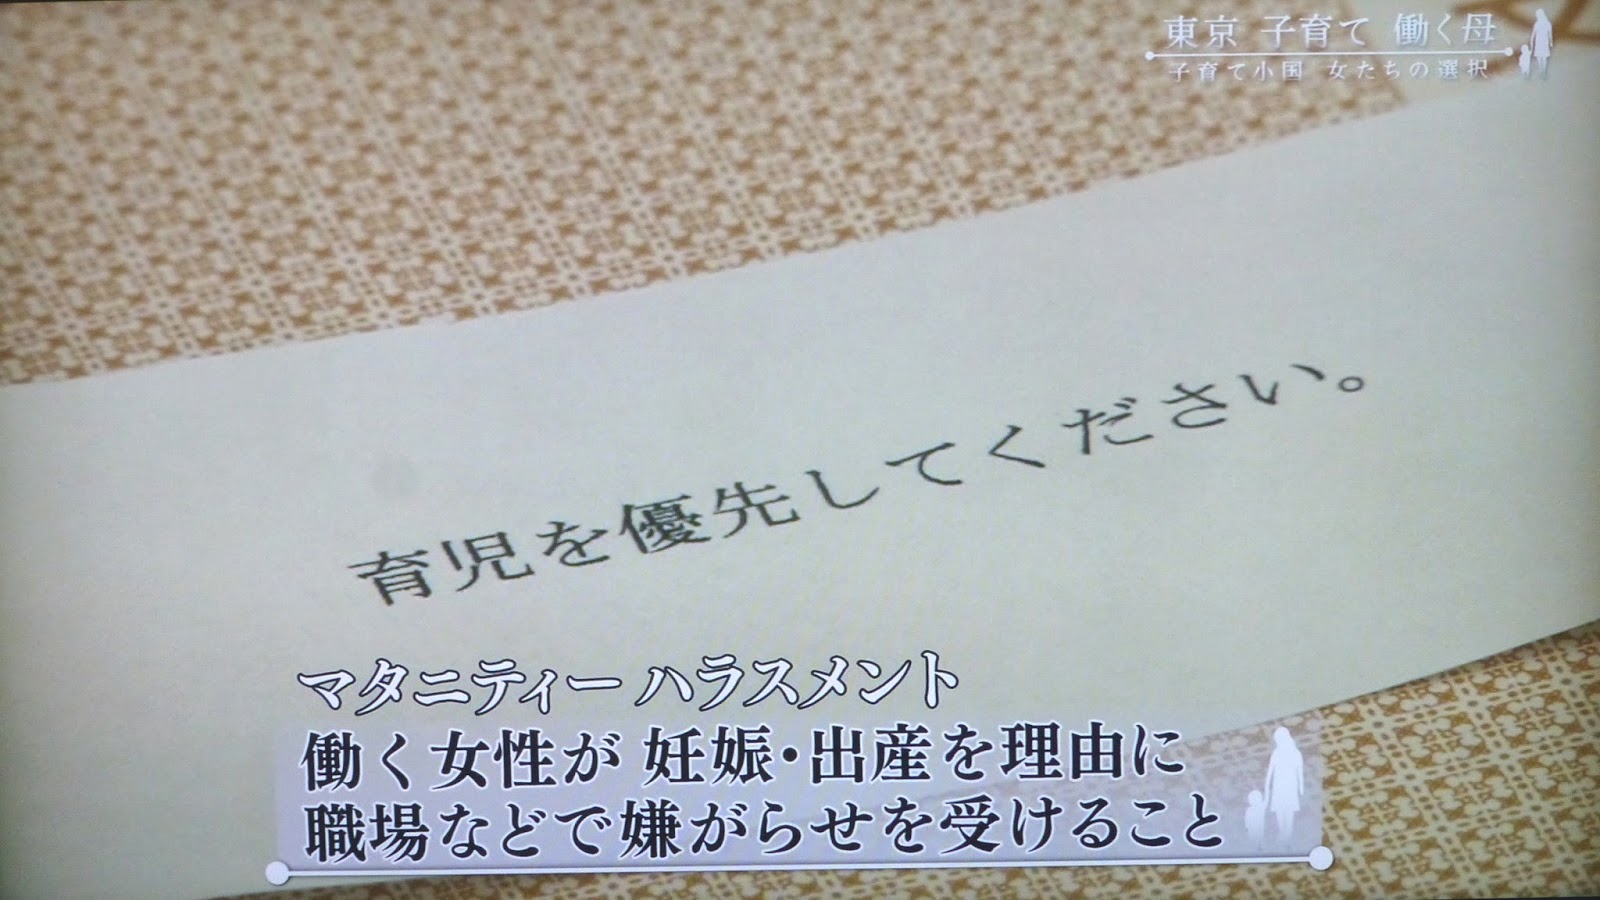 東京 子育て 働く母
子育て小国 女たちの選択
育児を優先してください。
マタニティー ハラスメント
働く女性が 妊娠・出産を理由に
職場などで嫌がらせを受けること